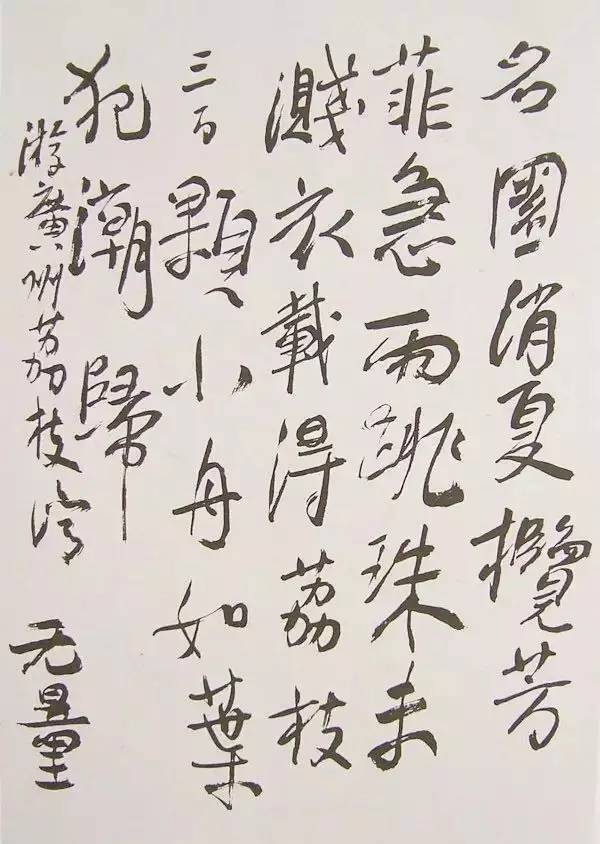 名園消夏攬芳
菲急雨跳珠未
濺衣載得荔枝
三百顆小舟如葉
犯潮歸
游廣州荔枝灣
无量